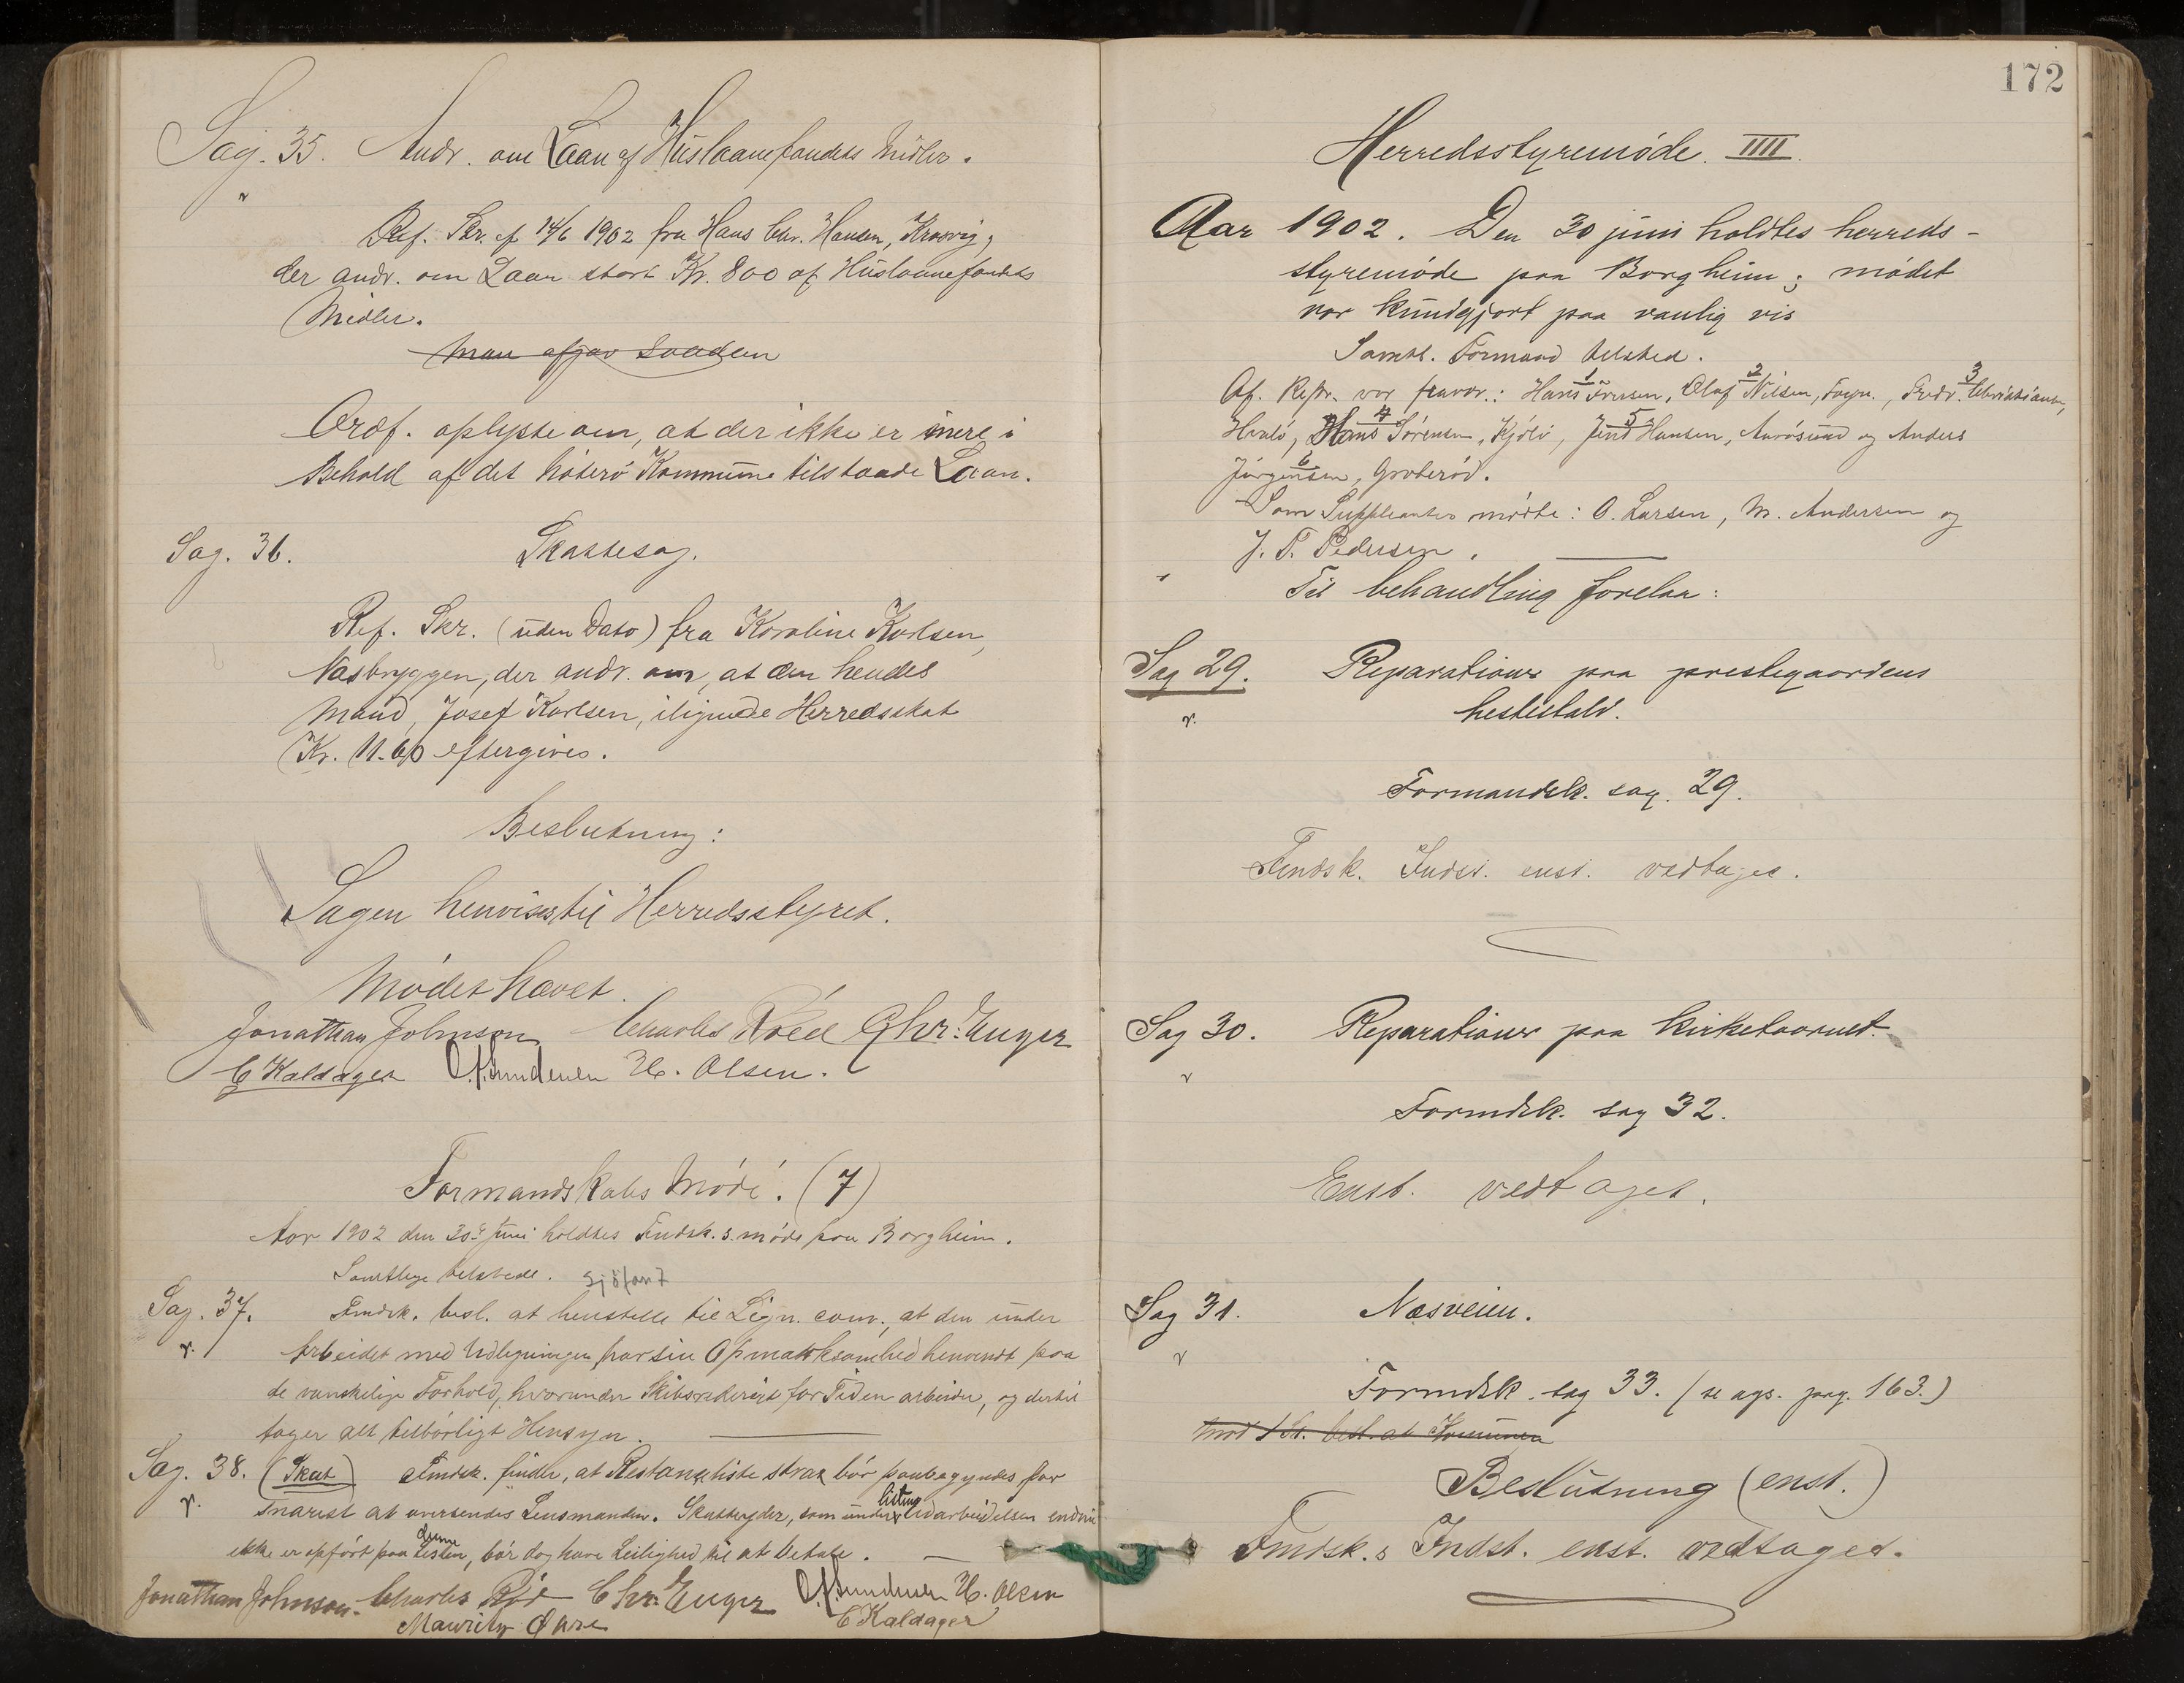 Sag. 35. Andr. om Laan af Huslaanefondets Midler.
Ref. Skr. af 14/6 1902 fra Hans Chr. Hansen,
der andr. om Laan stort Kr. 800 af Huslaanefondets
Midler.
Man afgav saadan
Ordf. oplyste om, at der ikke er mere i
Behold af det Nøterø Kommune tilstaaede Laan.
Sag. 36. Skattesag.
Ref. Skr. (uden Dato) fra Karoline Karlsen,
Næsbryggen, der andr. om, at den hendes
Mand, Josef Karlsen, ilignede Herredsskat
Kr. 11.60 eftergives.
Beslutning:
Sagen henvises til Herredsstyret.
Mødet hævet.
Jonathan Johnson Charles Røed Chr. Unger
C Kaldager H. Olsen.
Formandskabs Møde. (7)
Aar 1902 den 30te Juni holdtes Fmdsk.s. møde paa Borgheim.
Samtlige tilstede.
Sag. 37. Fmdsk. besl. at henstille til Lign. com., at den under
Arbeidet med Udligningen har sin Opmærksomhed henvendt paa
de vanskelige Forhold, hvorunder Skibsrederiet for Tiden arbeider, og dertil
tager alt tilbørligt Hensyn.
Sag. 38. (Skat) Fmdsk. finder, at Restanceliste strax bør paabegyndes for
snarest at oversendes Lensmanden. Skatteyder, som under listens Udarbeidelsen endnu
ikke er opført paa denne Listen, bør dog have Leilighed til at betale.
Jonathan Johnson. Charles Røed Chr. Unger H. Olsen
C Kaldager
172
Herredsstyremøde IIII.
Aar 1902. Den 30 juni holdtes herreds-
styremøde paa Borgheim; mødet
var kundgjort paa vanlig vis
Samtl. Formænd tilsted.
Af Repr. var fravær.: Hans 1 Iversen, Olaf 2 Nilsen, Fredr. 3 Christiansen,
Hans 4 Sørensen, Kjøle, Jens 5 Hansen, Aarøsund og Anders
Jørgensen 6, Groterød.
Som Suppleanter mødte: O. Larsen, M. Andersen og
J. P. Pedersen.
Til behandling forelaa:
Sag 29. Reparationer paa prestegaardens
hestestald.
Formandsk. sag. 29.
Fmdsk. Indst. enst. vedtaget.
Sag 30. Reparationer paa kirketaarnet.
Formdsk. sag 32.
Enst. vedtaget.
Sag 31. Næsveien.
Formdsk. sag 33. (se ags. pag. 163.)
Mod 1 St. besl. at Kommunen
Beslutning (enst.)
Fmdsk.s Indst. enst. vedtaget.